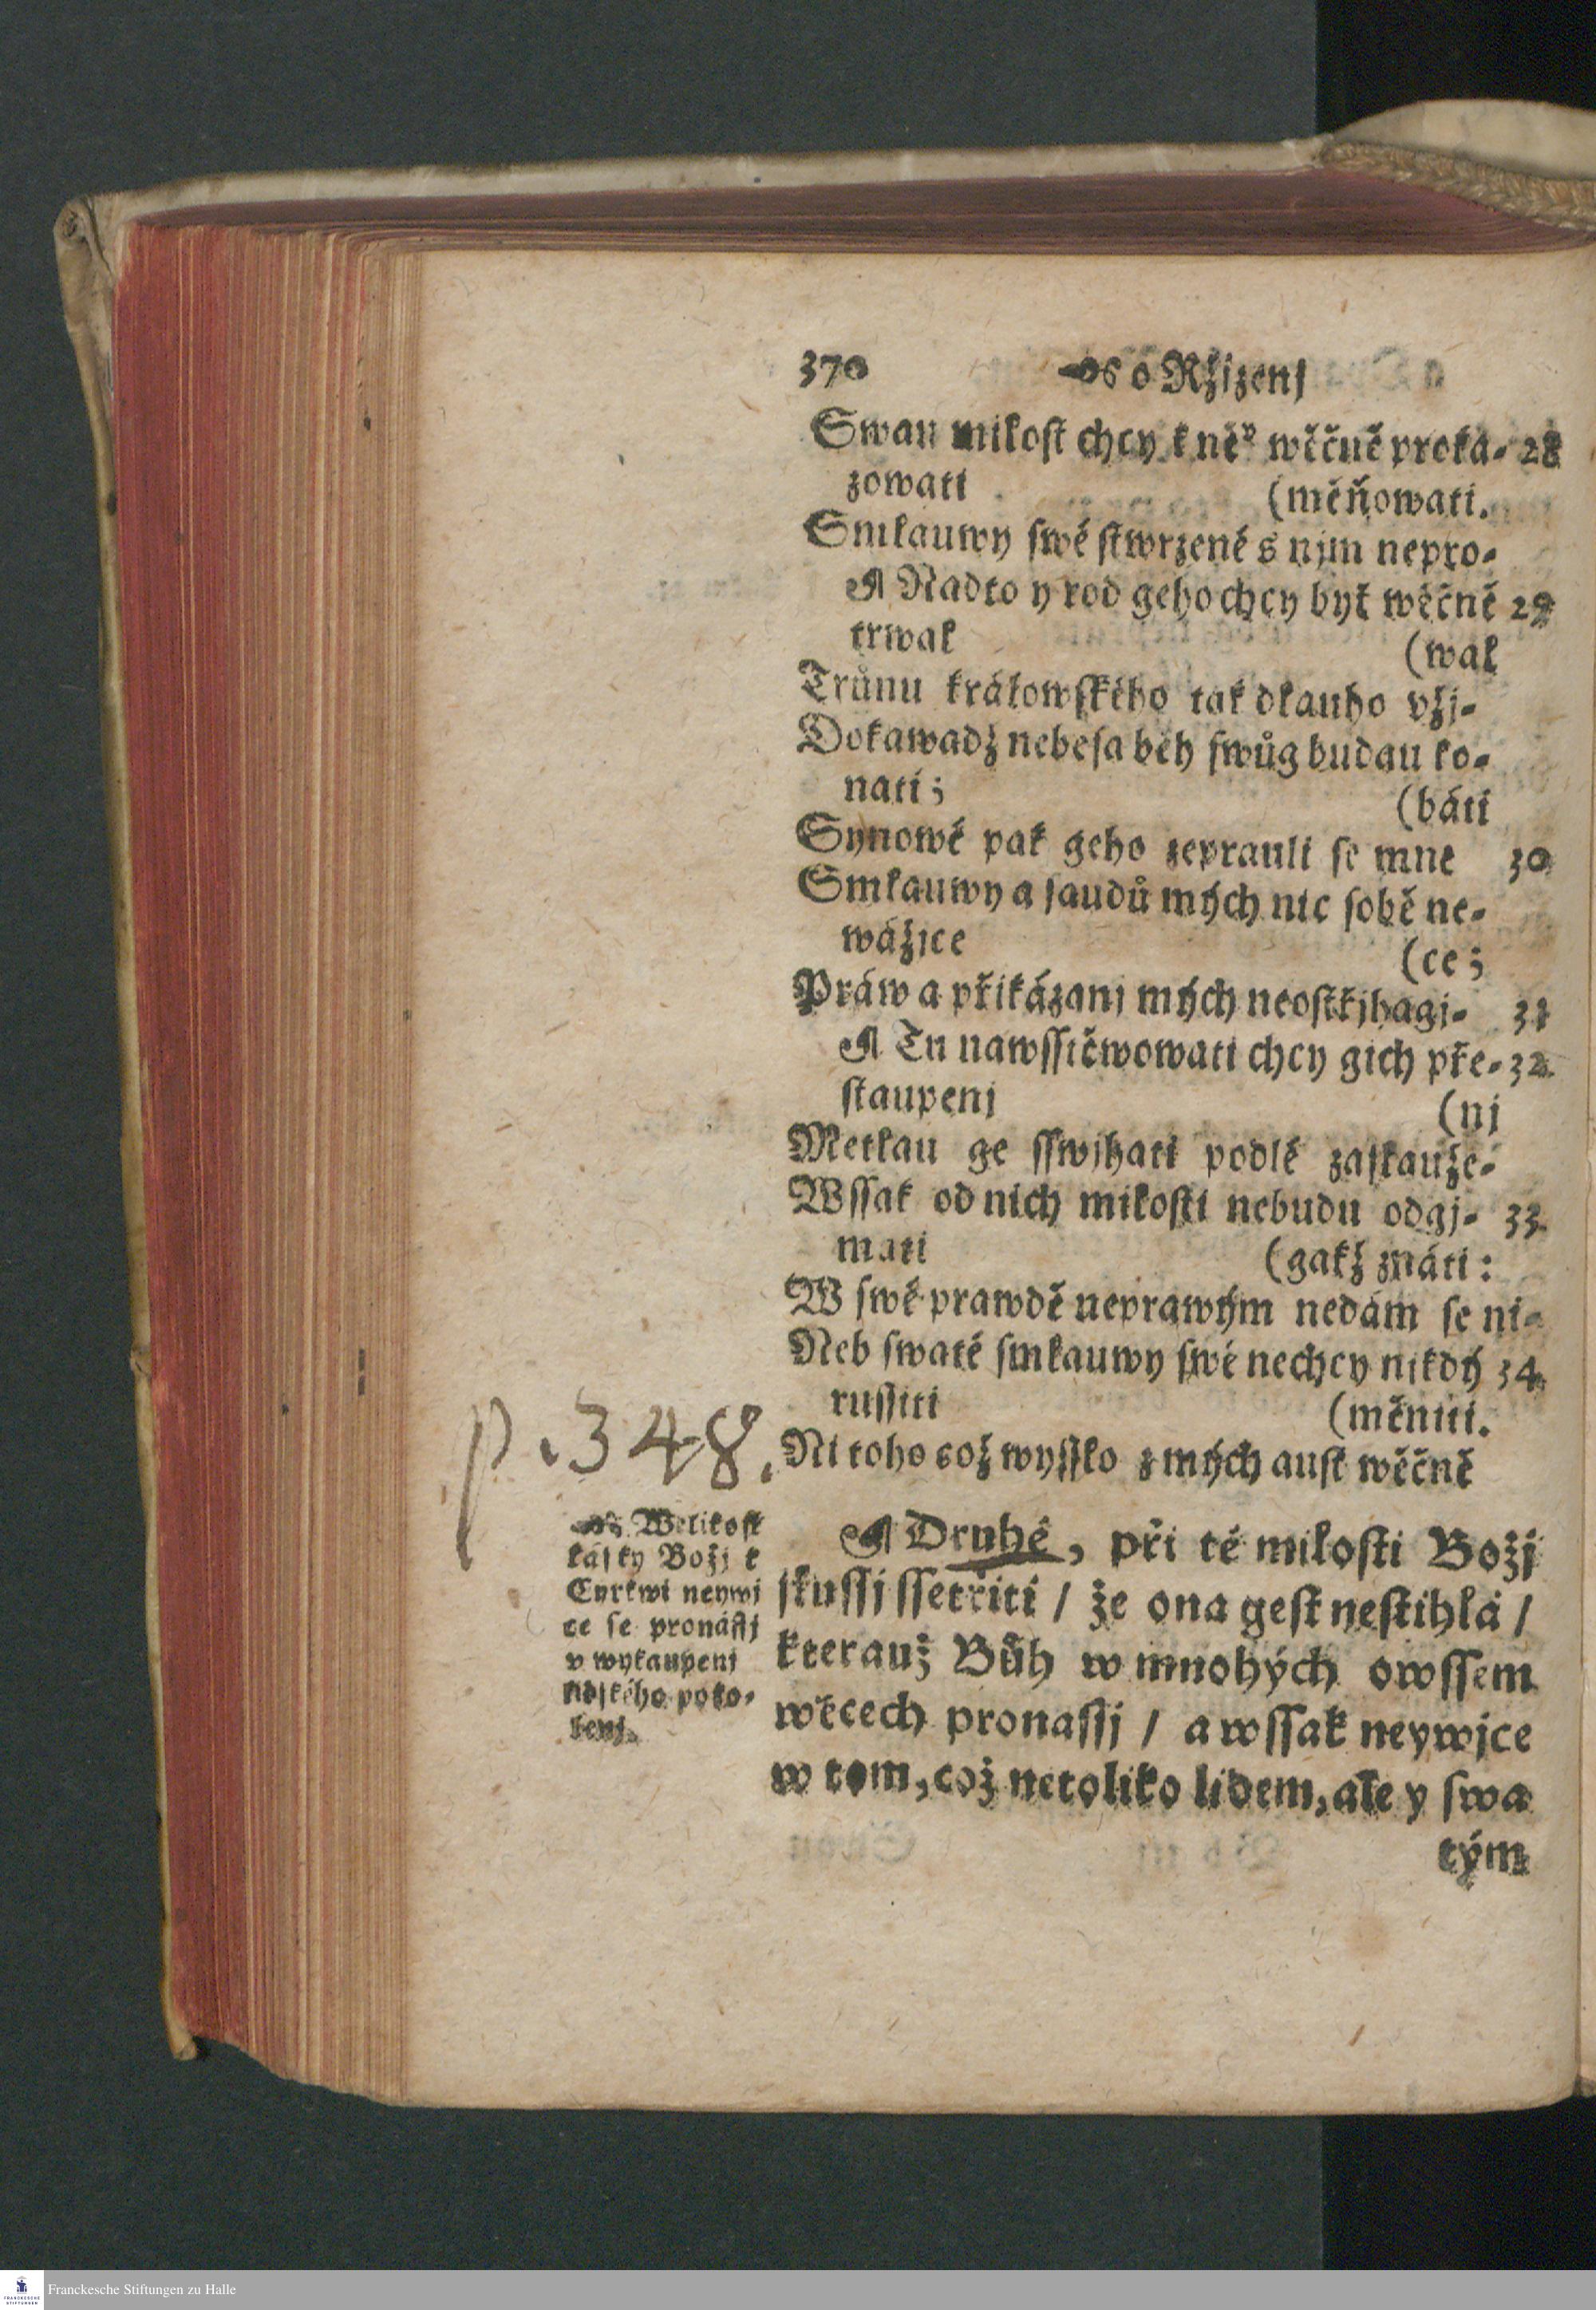 370 o Ržizenj
Swau milost chcy k něᵛ wěčně proka- 28
zowati (měňowati.
Smlauwy swé stwrzené s njm nepro-
Nadto y rod geho chcy byť wěčně 29
trwal (wal
Trůnu králowského tak dlauho vžj-
Dokawadž nebesa běh swůg budau ko-
nati; (báti
Synowé pak geho zeprauli se mne 30
Smlauwy a saudů mých nic sobě ne-
wážjce (ce;
Práw a přikázanj mých neostřjhagj- 31
Tu nawsstěwowati chcy gich pře- 32
staupenj (nj
Metlau ge sswjhati podlé zaslauže-
Wssak od nich milosti nebudu odgj- 33
mati (gakž znáti:
W swé prawdě neprawým nedám se ni-
Neb swaté smlauwy swé nechcy nikdý 34
russiti (měniti.
Ni toho což wysslo z mých aust wěčně
p. 348.
Welikost
lásky Božj k
Cyrkwi neywj
ce se pronássj
v wykaupenj
lidského poko-
lenj.
Druhé, při té milosti Božj
slussj ssetřiti / že ona gest nestihlá /
kterauž Bůh w mnohých owssem
wěcech pronassj / a wssak neywjce
w tom, což netoliko lidem, ale y swa
tým
Franckesche Stiftungen zu Halle